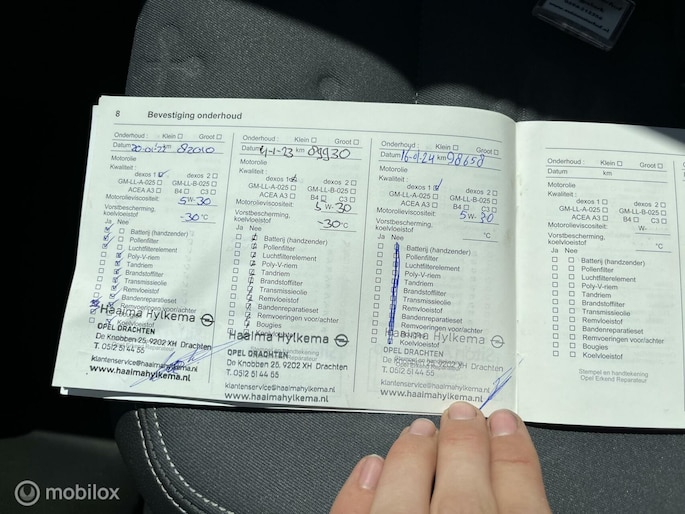 8 Bevestiging onderhoud
Onderhoud : Klein Groot
Datum 20-01-22 km 82010
Motorolie
Kwaliteit :
dexos 1 dexos 2
GM-LL-A-025 GM-LL-B-025
ACEA A3 B4 C3
Motorolieviscositeit: 5W-30
Vorstbescherming,
koelvloeistof -30 °C
Ja Nee
Batterij (handzender)
Pollenfilter
Luchtfilterelement
Poly-V-riem
Tandriem
Brandstoffilter
Transmissieolie
Remvloeistof
Bandenreparatieset
Remvoeringen voor/achter
Koelvloeistof
Haaima Hylkema
OPEL DRACHTEN
De Knobben 25, 9202 XH Drachten
T. 0512 51 44 55
klantenservice@haaimahylkema.nl
www.haaimahylkema.nl
Onderhoud : Klein Groot
Datum 4-1-23 km 89930
Motorolie
Kwaliteit :
dexos 1 dexos 2
GM-LL-A-025 GM-LL-B-025
ACEA A3 B4 C3
Motorolieviscositeit: 5W-30
Vorstbescherming,
koelvloeistof -30 °C
Ja Nee
Batterij (handzender)
Pollenfilter
Luchtfilterelement
Poly-V-riem
Tandriem
Brandstoffilter
Transmissieolie
Remvloeistof
Bandenreparatieset
Remvoeringen voor/achter
Bougies
Koelvloeistof
Haaima Hylkema
OPEL DRACHTEN
De Knobben 25, 9202 XH Drachten
T. 0512 51 44 55
klantenservice@haaimahylkema.nl
www.haaimahylkema.nl
Onderhoud : Klein Groot
Datum 16-01-24 km 98658
Motorolie
Kwaliteit :
dexos 1 dexos 2
GM-LL-A-025 GM-LL-B-025
ACEA A3 B4 C3
Motorolieviscositeit: 5W-30
Vorstbescherming,
koelvloeistof °C
Ja Nee
Batterij (handzender)
Pollenfilter
Luchtfilterelement
Poly-V-riem
Tandriem
Brandstoffilter
Transmissieolie
Remvloeistof
Bandenreparatieset
Remvoeringen voor/achter
Bougies
Koelvloeistof
Haaima Hylkema
OPEL DRACHTEN
De Knobben 25, 9202 XH Drachten
T. 0512 51 44 55
klantenservice@haaimahylkema.nl
www.haaimahylkema.nl
Onderhoud : Klein Groot
Datum km
Motorolie
Kwaliteit :
dexos 1 dexos 2
GM-LL-A-025 GM-LL-B-025
ACEA A3 B4 C3
Motorolieviscositeit: W-
Vorstbescherming,
koelvloeistof °C
Ja Nee
Batterij (handzender)
Pollenfilter
Luchtfilterelement
Poly-V-riem
Tandriem
Brandstoffilter
Transmissieolie
Remvloeistof
Bandenreparatieset
Remvoeringen voor/achter
Bougies
Koelvloeistof
Stempel en handtekening
Opel Erkend Reparateur
mobilox